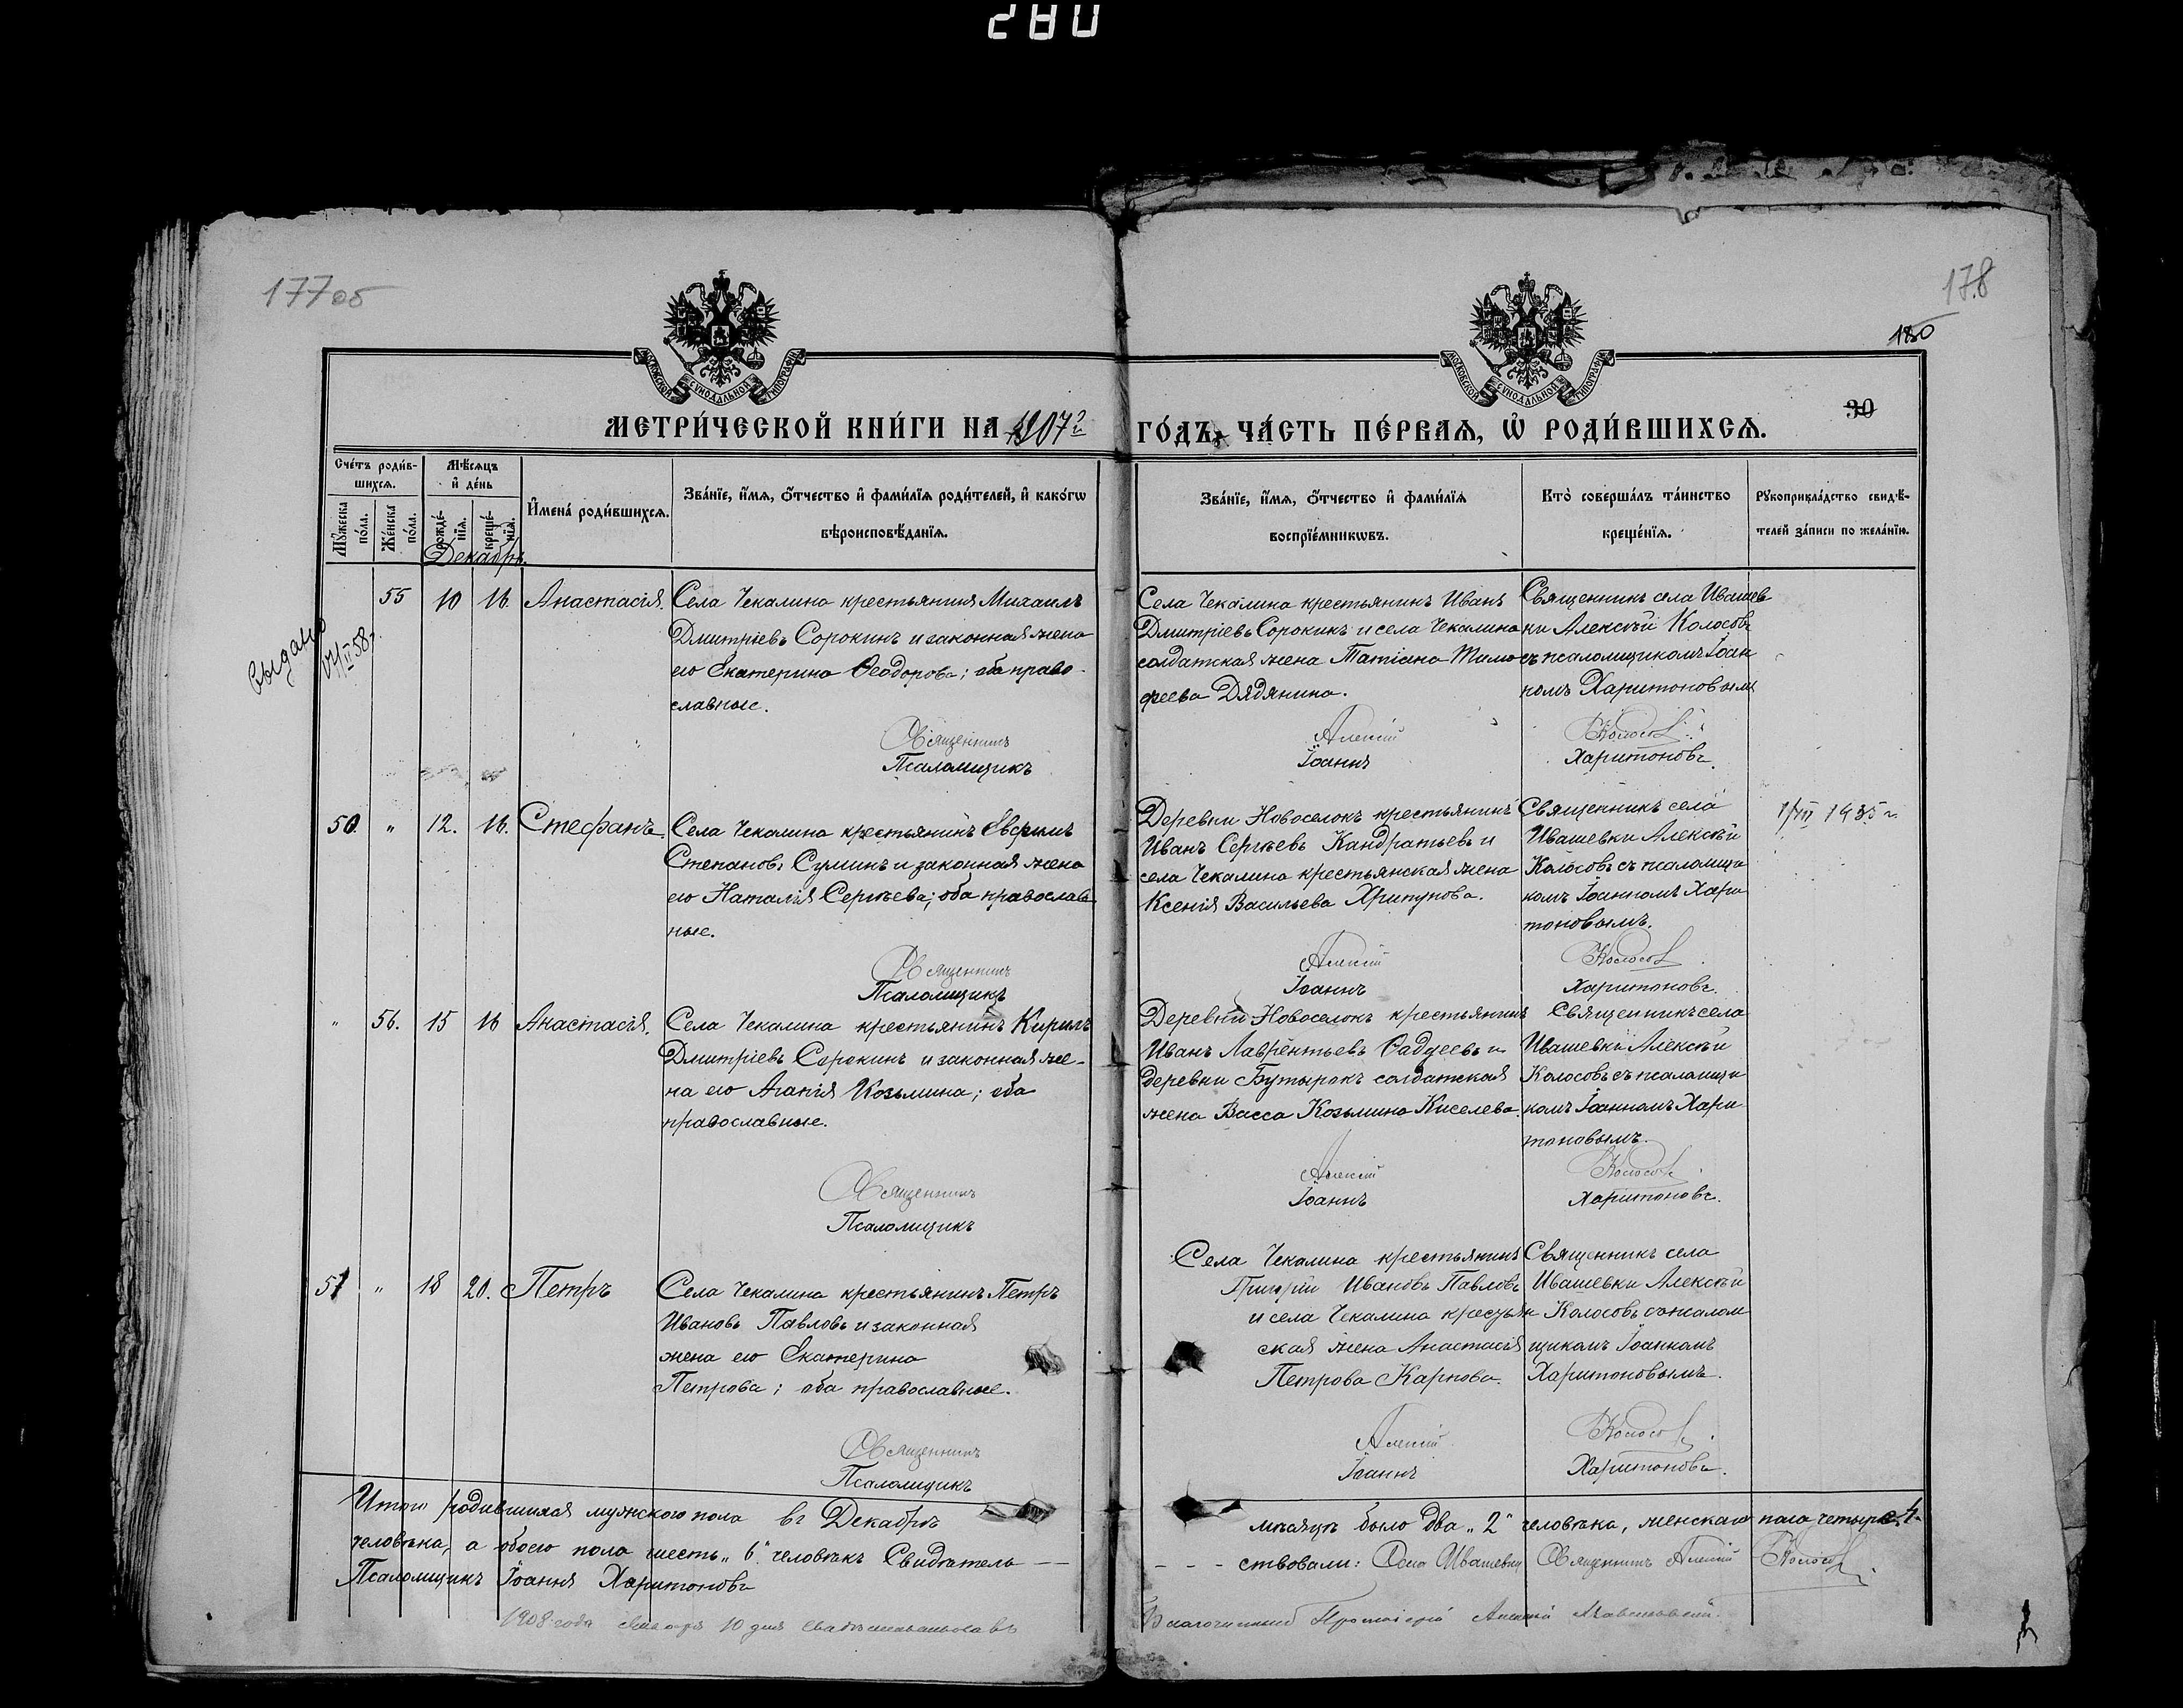 280
177об
178
180
30
МОСКОВСКОЙ СУНОДАЛЬНОЙ ТИПОГРАФІИ
МОСКОВСКОЙ СУНОДАЛЬНОЙ ТИПОГРАФІИ
МЕТРИ́ЧЕСКОЙ КНИ́ГИ НА 1907й
ГО́ДЪ, ЧА́СТЬ ПЕ́РВАЯ, Ѡ҆ РОДИ́ВШИХСЯ.
Сче́тъ роди́в-
шихся.
Мѣ́сяцъ
и҆ де́нь
Му́жеска
по́ла.
Же́нска
по́ла.
рожде́-
нїя.
креще́-
нїя.
И҆мена̀ роди́вшихся.
Зва́нїе, и҆́мя, ѻ҆́тчество и҆ фами́лїя роди́телей, и҆ како́гѡ
вѣроисповѣ́данїя.
Зва́нїе, и҆́мя, ѻ҆́тчество и҆ фами́лїя
воспрїе́мникѡвъ.
Кто̀ соверша́лъ та́инство
креще́нїя.
Рукоприкла́дство свидѣ́-
телей за́писи по жела́нїю.
Декабрь.
выдано
17/II 58 г.
55
10
16.
Анастасія.
Села Чекалина крестьянинъ Михаилъ
Дмитріевъ Сорокинъ и законная жена
его Екатерина Ѳеодорова; оба право-
славные.
Священникъ
Псаломщикъ
Села Чекалина крестьянинъ Иванъ
Дмитріевъ Сорокинъ и села Чекалина
солдатская жена Татіана Тимо
феева Дядянина.
Алексій
Іоаннъ
Священникъ села Ивашев
ки Алексѣй Колосовъ
съ псаломщикомъ Іоан
номъ Харитоновымъ
Колосовъ
Харитоновъ.
50.
"
12.
16.
Стефанъ.
Села Чекалина крестьянинъ Евфимъ
Степановъ Суминъ и законная жена
его Наталія Сергѣева; оба православ
ные.
Священникъ
Псаломщикъ
Деревни Новоселокъ крестьянинъ
Иванъ Сергѣевъ Кандратьевъ и
села Чекалина крестьянская жена
Ксенія Васильева Хрипунова.
Алексій
Іоаннъ
Священникъ села
Ивашевки Алексѣй
Колосовъ съ псаломщи
комъ Іоанномъ Хари
тоновымъ.
Колосовъ
Харитоновъ.
1935 г.
"
56.
15
16
Анастасія.
Села Чекалина крестьянинъ Кирилъ
Дмитріевъ Сорокинъ и законная же-
на его Агапія Козьмина; оба
православные.
Священникъ
Псаломщикъ
Деревни Новоселокъ крестьянинъ
Иванъ Лаврентьевъ Ѳаддеевъ и
деревни Бутырокъ солдатская
жена Васса Козьмина Киселева.
Алексій
Іоаннъ
Священникъ села
Ивашевки Алексѣй
Колосовъ съ псаломщи
комъ Іоанномъ Хари
тоновымъ.
Колосовъ
Харитоновъ.
51
"
18
20.
Петръ
Села Чекалина крестьянинъ Петръ
Ивановъ Павловъ и законная
жена его Екатерина
Петрова; оба православные.
Священникъ
Псаломщикъ
Села Чекалина крестьянинъ
Григорій Ивановъ Павловъ
и села Чекалина крестьян
ская жена Анастасія
Петрова Карпова.
Алексій
Іоаннъ
Священникъ села
Ивашевки Алексѣй
Колосовъ съ псалом
щикомъ Іоанномъ
Харитоновымъ.
Колосовъ
Харитоновъ.
Итого родившихся мужского пола въ Декабрѣ мѣсяцѣ было два „2" человѣка, женскаго пола четыре 4
человѣка, а обоего пола шесть „6" человѣкъ Свидѣтель — — - - - ствовали: Села Ивашевки Священникъ Алексій Колосовъ.
Псаломщикъ Іоаннъ Харитоновъ
1908 года Января 10 дня Свидѣтельствовалъ Благочинный Протоіерей Алексій